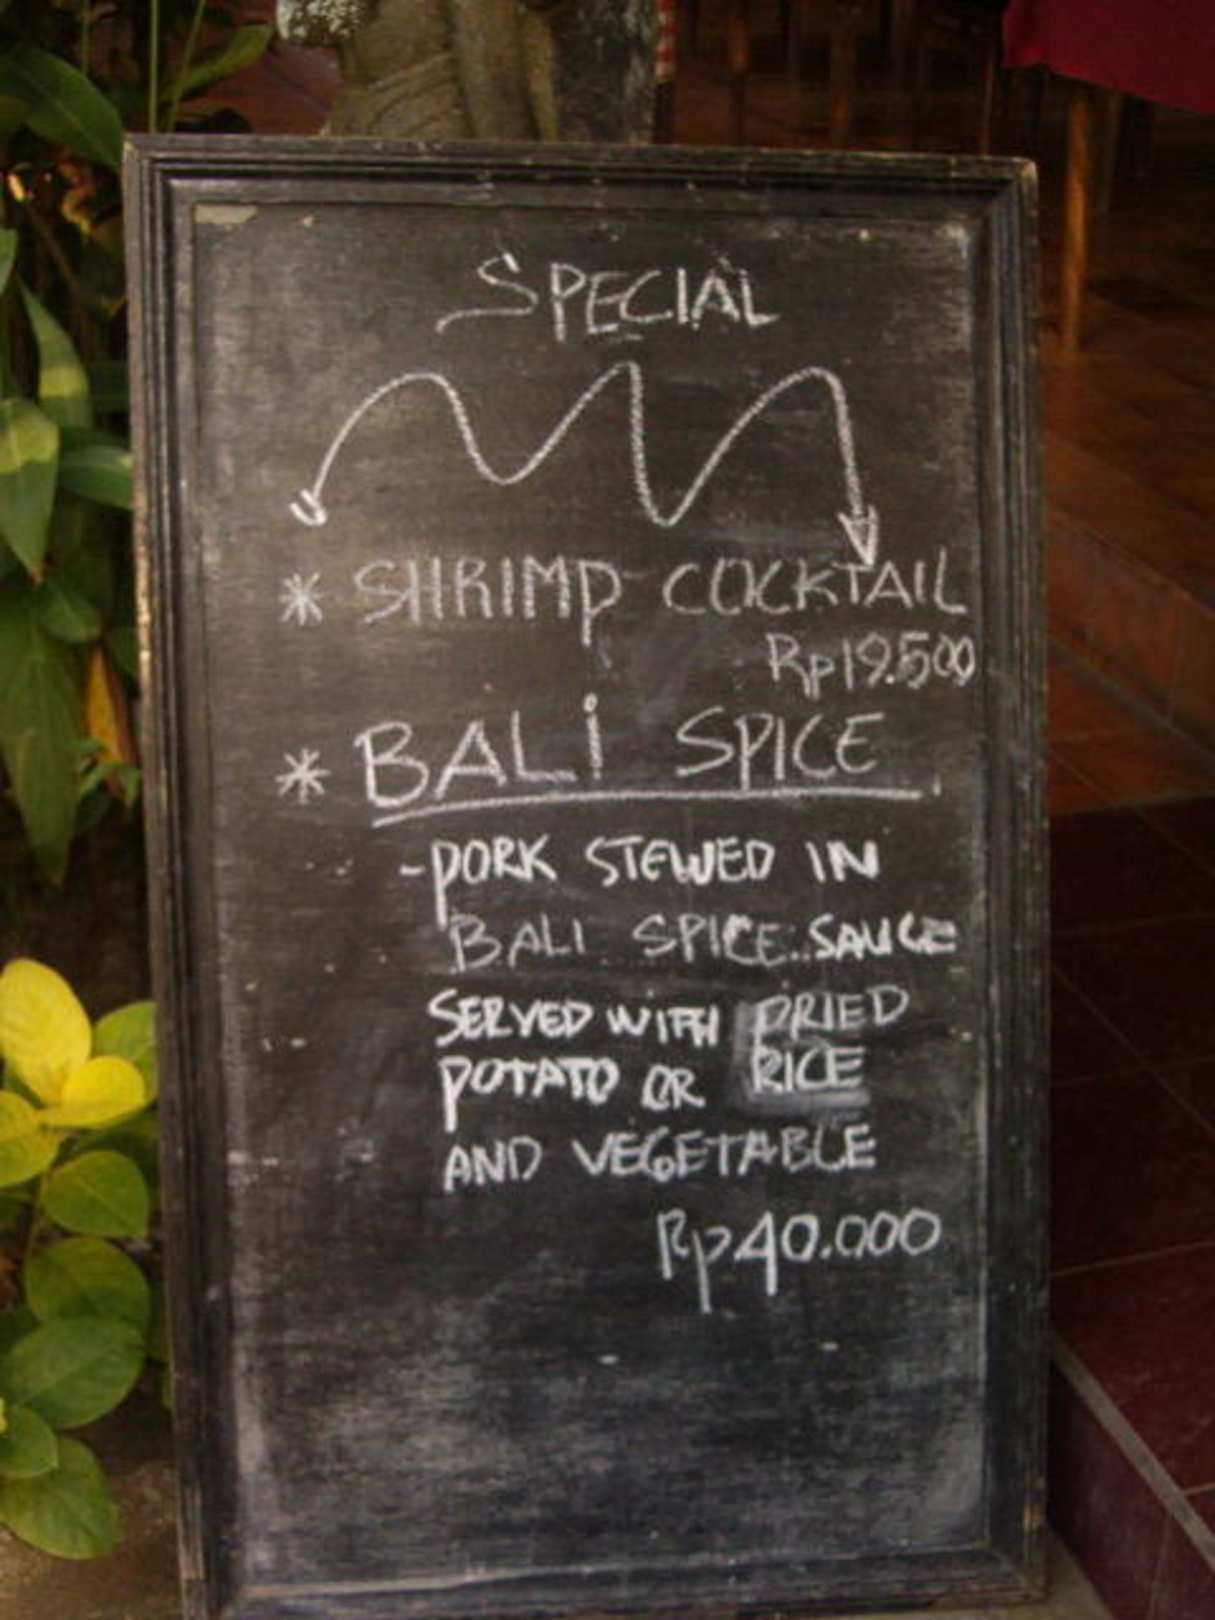 SPECIAL
* SHRIMP COCKTAIL
Rp19.500
* BALI SPICE.
- PORK STEWED IN
BALI SPICE..SAUCE
SERVED WITH DRIED
POTATO OR RICE
AND VEGETABLE
Rp40.000